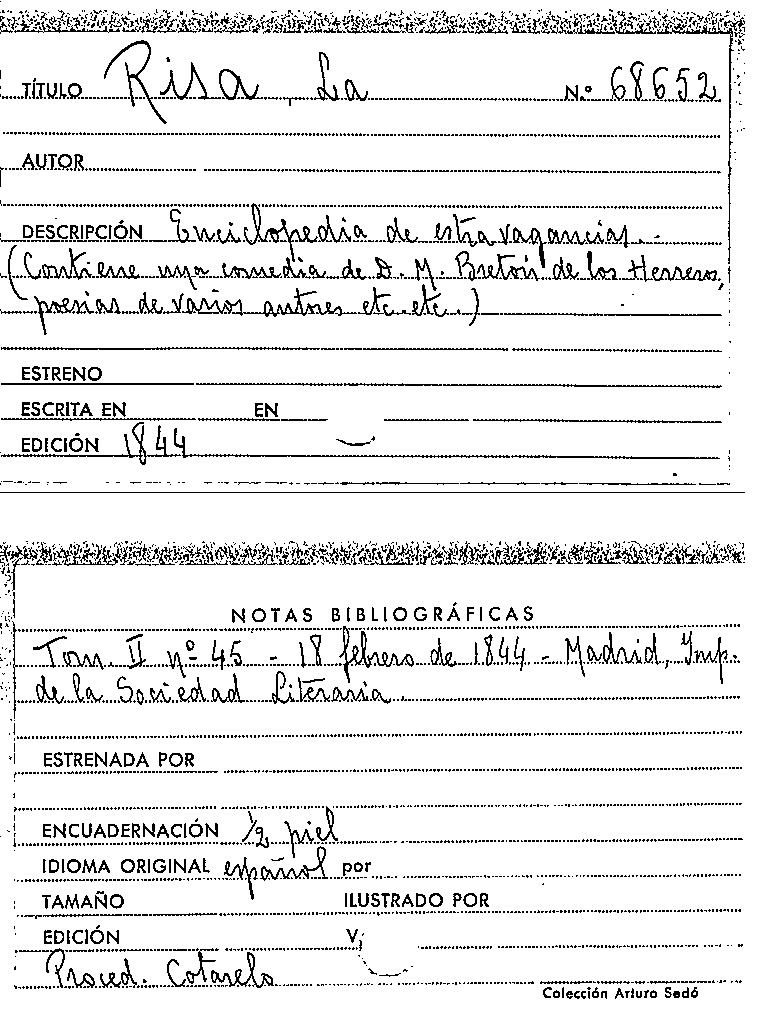 TÍTULO Risa, La N.º 68652
AUTOR
DESCRIPCIÓN Enciclopedia de estravagancias.-
(Contiene una comedia de D. M. Bretón de los Herreros,
poesias de varios autores etc. etc.)
ESTRENO
ESCRITA EN EN
EDICIÓN 1844
NOTAS BIBLIOGRÁFICAS
Tom. II nº 45 - 18 febrero de 1844 - Madrid, Imp.
de la Sociedad Literaria.
ESTRENADA POR
ENCUADERNACIÓN 1/2 piel
IDIOMA ORIGINAL español por
TAMAÑO ILUSTRADO POR
EDICIÓN V,
Proced. Cotarelo
Colección Arturo Sedó